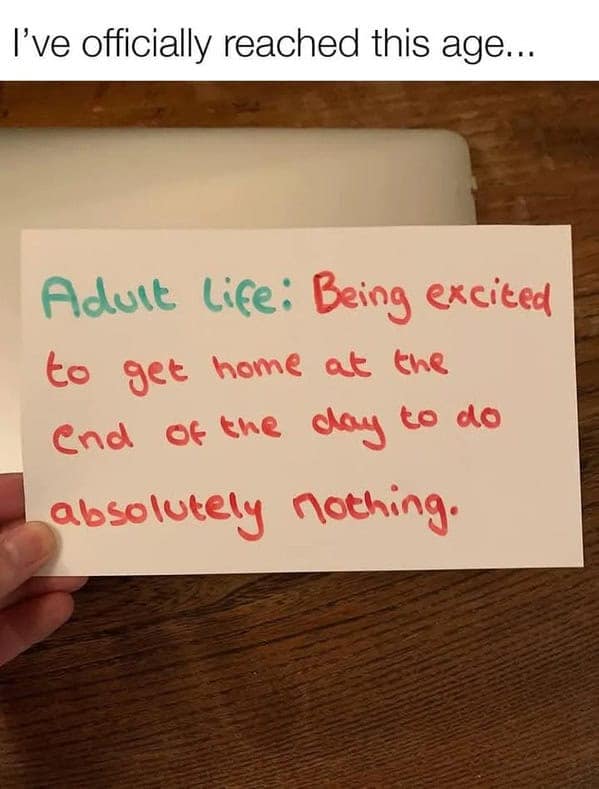 I’ve officially reached this age...
Adult life: Being excited
to get home at the
end of the day to do
absolutely nothing.